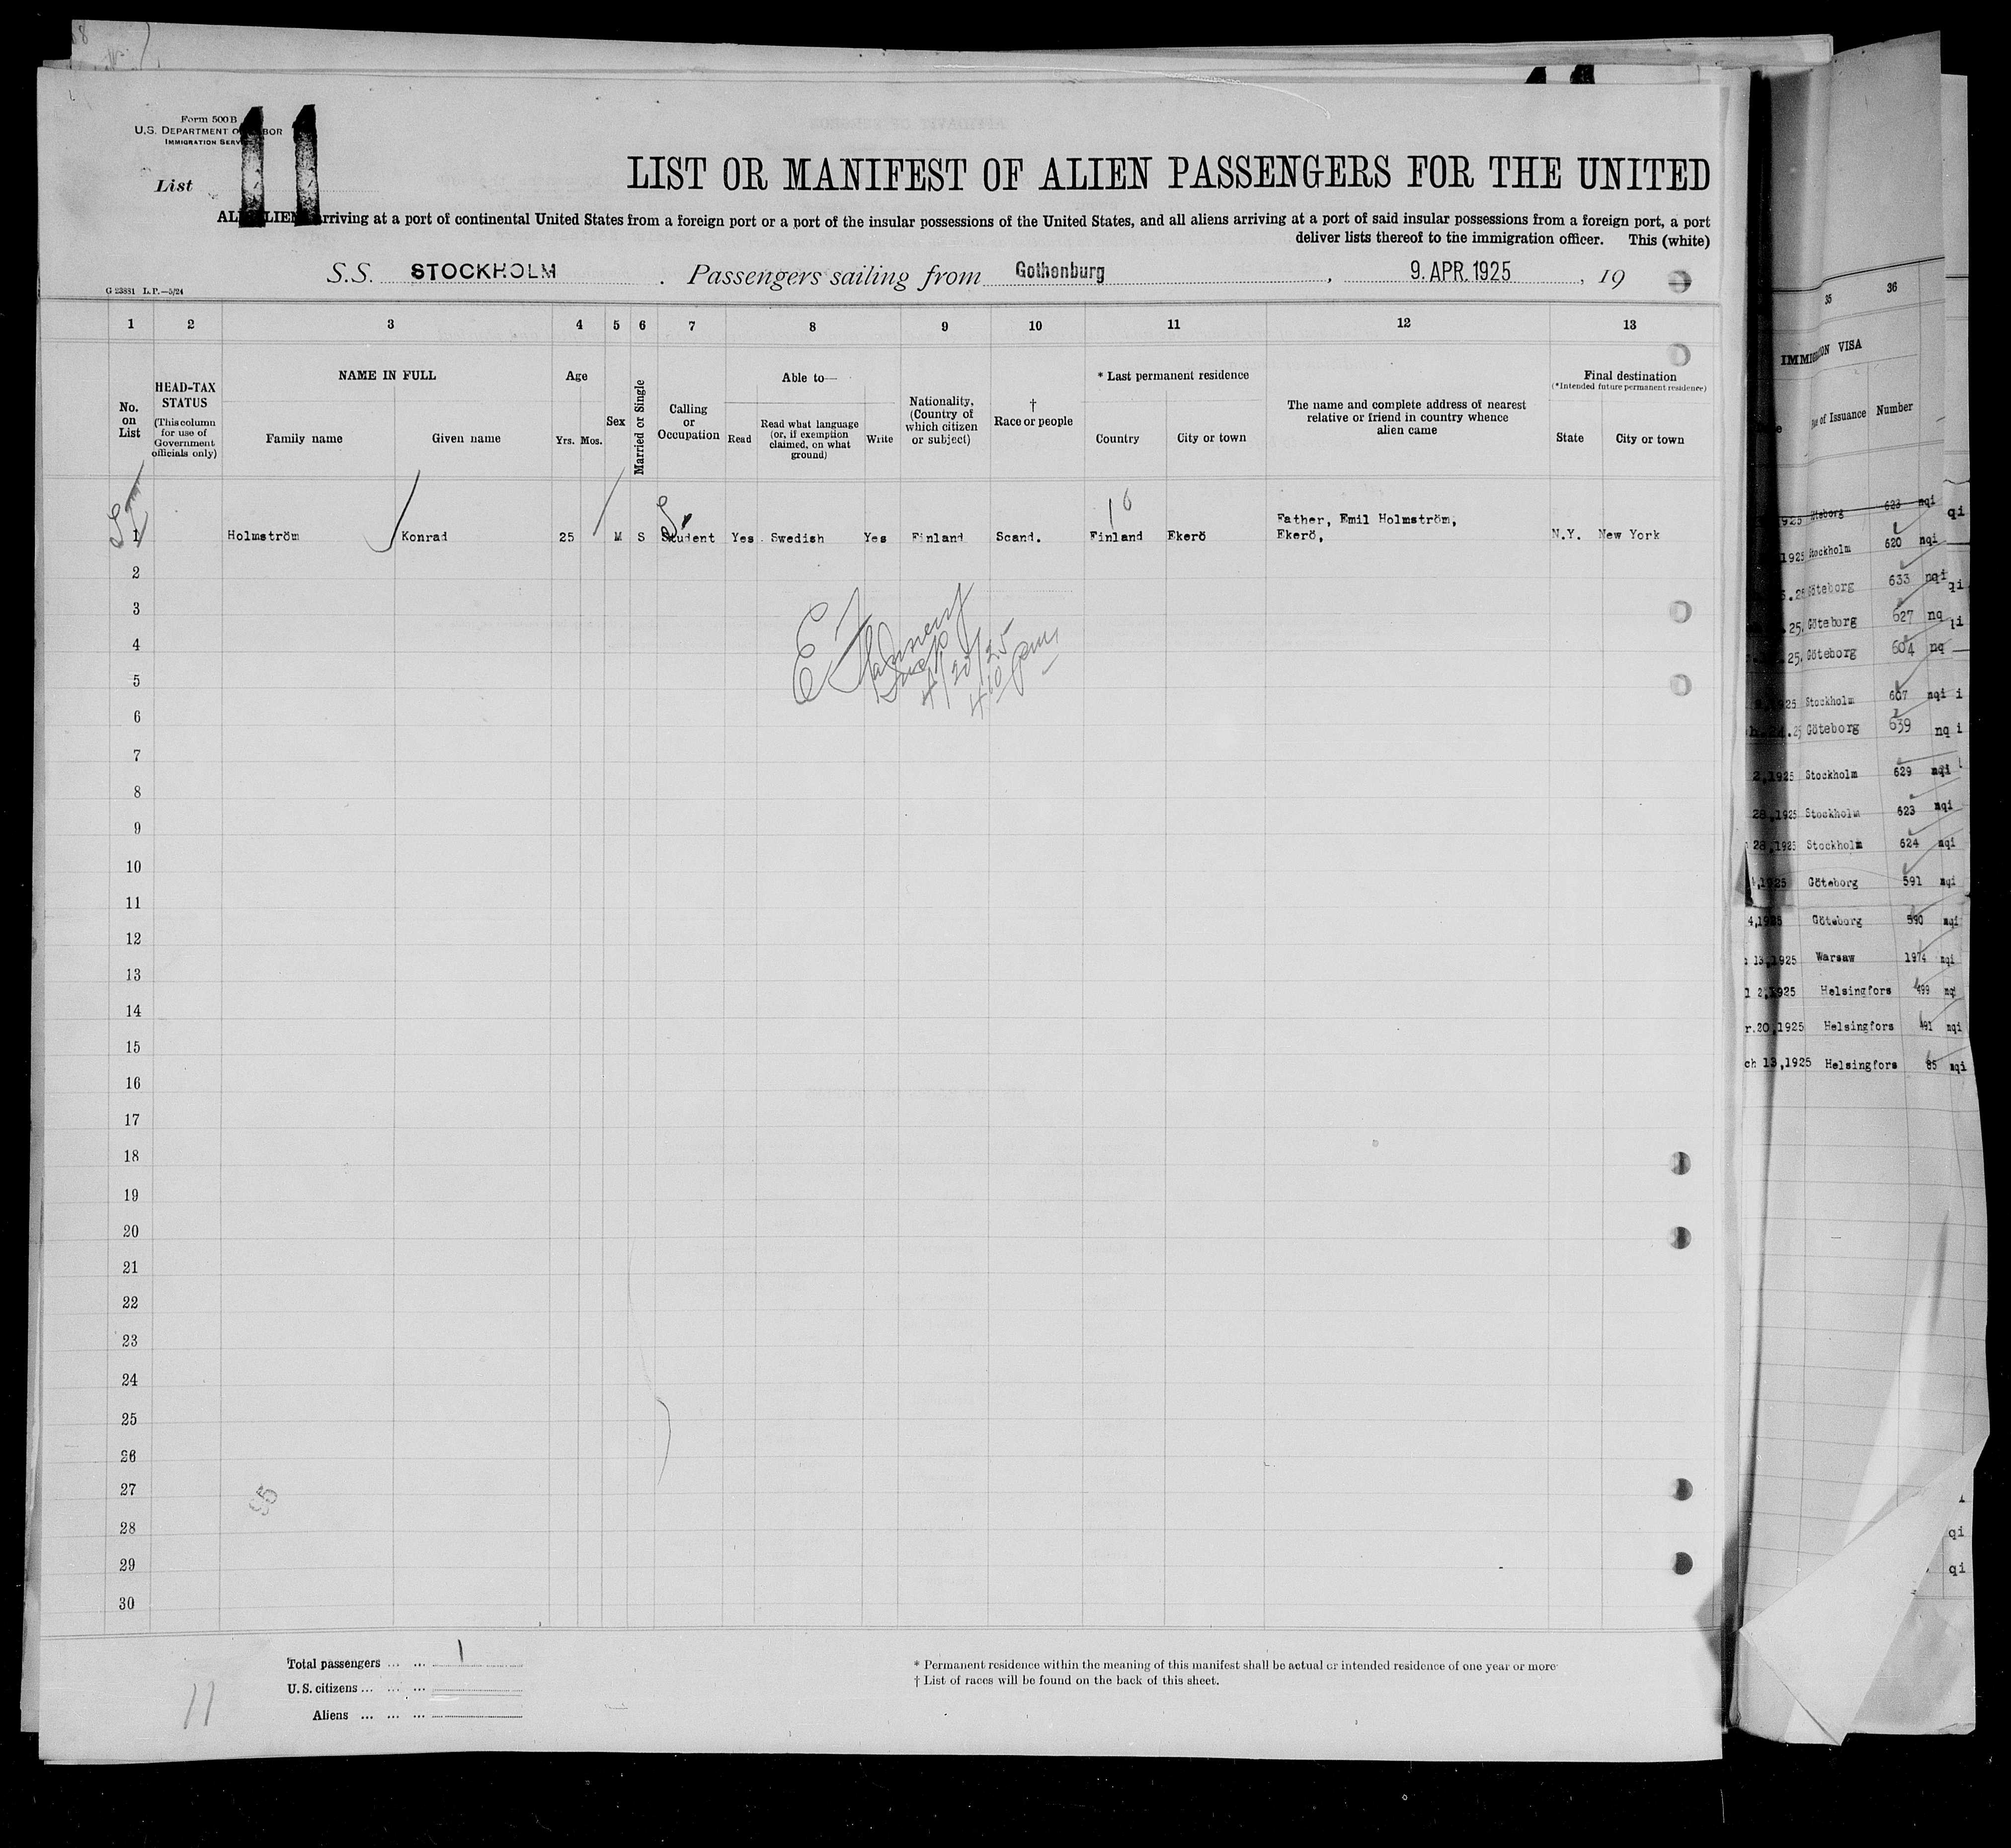 Form 500 B
U.S. DEPARTMENT OF LABOR
IMMIGRATION SERVICE
List 11
LIST OR MANIFEST OF ALIEN PASSENGERS FOR THE UNITED
ALL ALIENS arriving at a port of continental United States from a foreign port or a port of the insular possessions of the United States, and all aliens arriving at a port of said insular possessions from a foreign port, a port
deliver lists thereof to the immigration officer. This (white)
S.S. STOCKHOLM . Passengers sailing from Gothenburg , 9. APR. 1925 , 19
G 23881 L.P.—5/24
1 2 3 4 5 6 7 8 9 10 11 12 13
No. on List
HEAD-TAX STATUS (This column for use of Government officials only)
NAME IN FULL
Family name Given name
Age
Yrs. Mos.
Sex
Married or Single
Calling or Occupation
Able to—
Read
Read what language (or, if exemption claimed, on what ground)
Write
Nationality. (Country of which citizen or subject)
† Race or people
* Last permanent residence
Country City or town
The name and complete address of nearest relative or friend in country whence alien came
Final destination
(*Intended future permanent residence)
State City or town
10
1 Holmström Konrad 25 M S Student Yes Swedish Yes Finland Scand. Finland Ekerö Father, Emil Holmström, Ekerö, N.Y. New York
2
3
4
5
6
7
8
9
10
11
12
13
14
15
16
17
18
19
20
21
22
23
24
25
26
27
28
29
30
4/20/25
410 pm
95
Total passengers ... ... 1
U.S. citizens ... ... ...
Aliens ... ... ...
11
* Permanent residence within the meaning of this manifest shall be actual or intended residence of one year or more
† List of races will be found on the back of this sheet.
35 36
IMMIGRATION VISA
of Issuance Number
1925 Göteborg 623 nqi
1925 Stockholm 620 nqi
Göteborg 633 nqi
25, Göteborg 627 nq
25, Göteborg 604 nq
1925 Stockholm 607 nqi
25 Göteborg 639 nqi
2,1925 Stockholm 629 nqi
28,1925 Stockholm 623 nqi
28,1925 Stockholm 624 nqi
1925 Göteborg 591 nqi
4,1925 Göteborg 590 nqi
13,1925 Warsaw 1974 nqi
2,1925 Helsingfors 499 nqi
r.20,1925 Helsingfors 491 nqi
ch 13,1925 Helsingfors 85 nqi
qi
qi